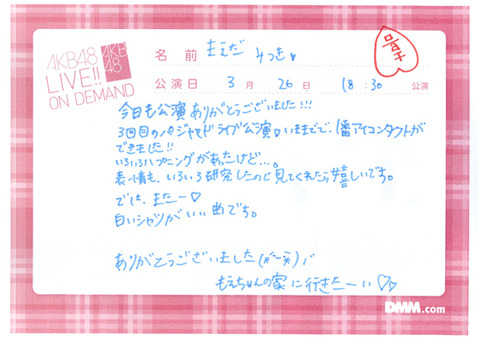 AKB48
LIVE!!
ON DEMAND
AKB
48
名前 まえだ みつき♥
公演日 3月 26日 18:30 公演
今日も公演ありがとうございました!!!
3回目のパジャマドライブ公演♥いままでで、1番アイコンタクトが
できました!!
いろいろハプニングがあったけど…。
表情も、いろいろ研究したので見てくれたら嬉しいです。
では、またー♡
白いシャツがいい曲です。
ありがとうございました
もえちゃんの家に行きたーい♡
DMM.com